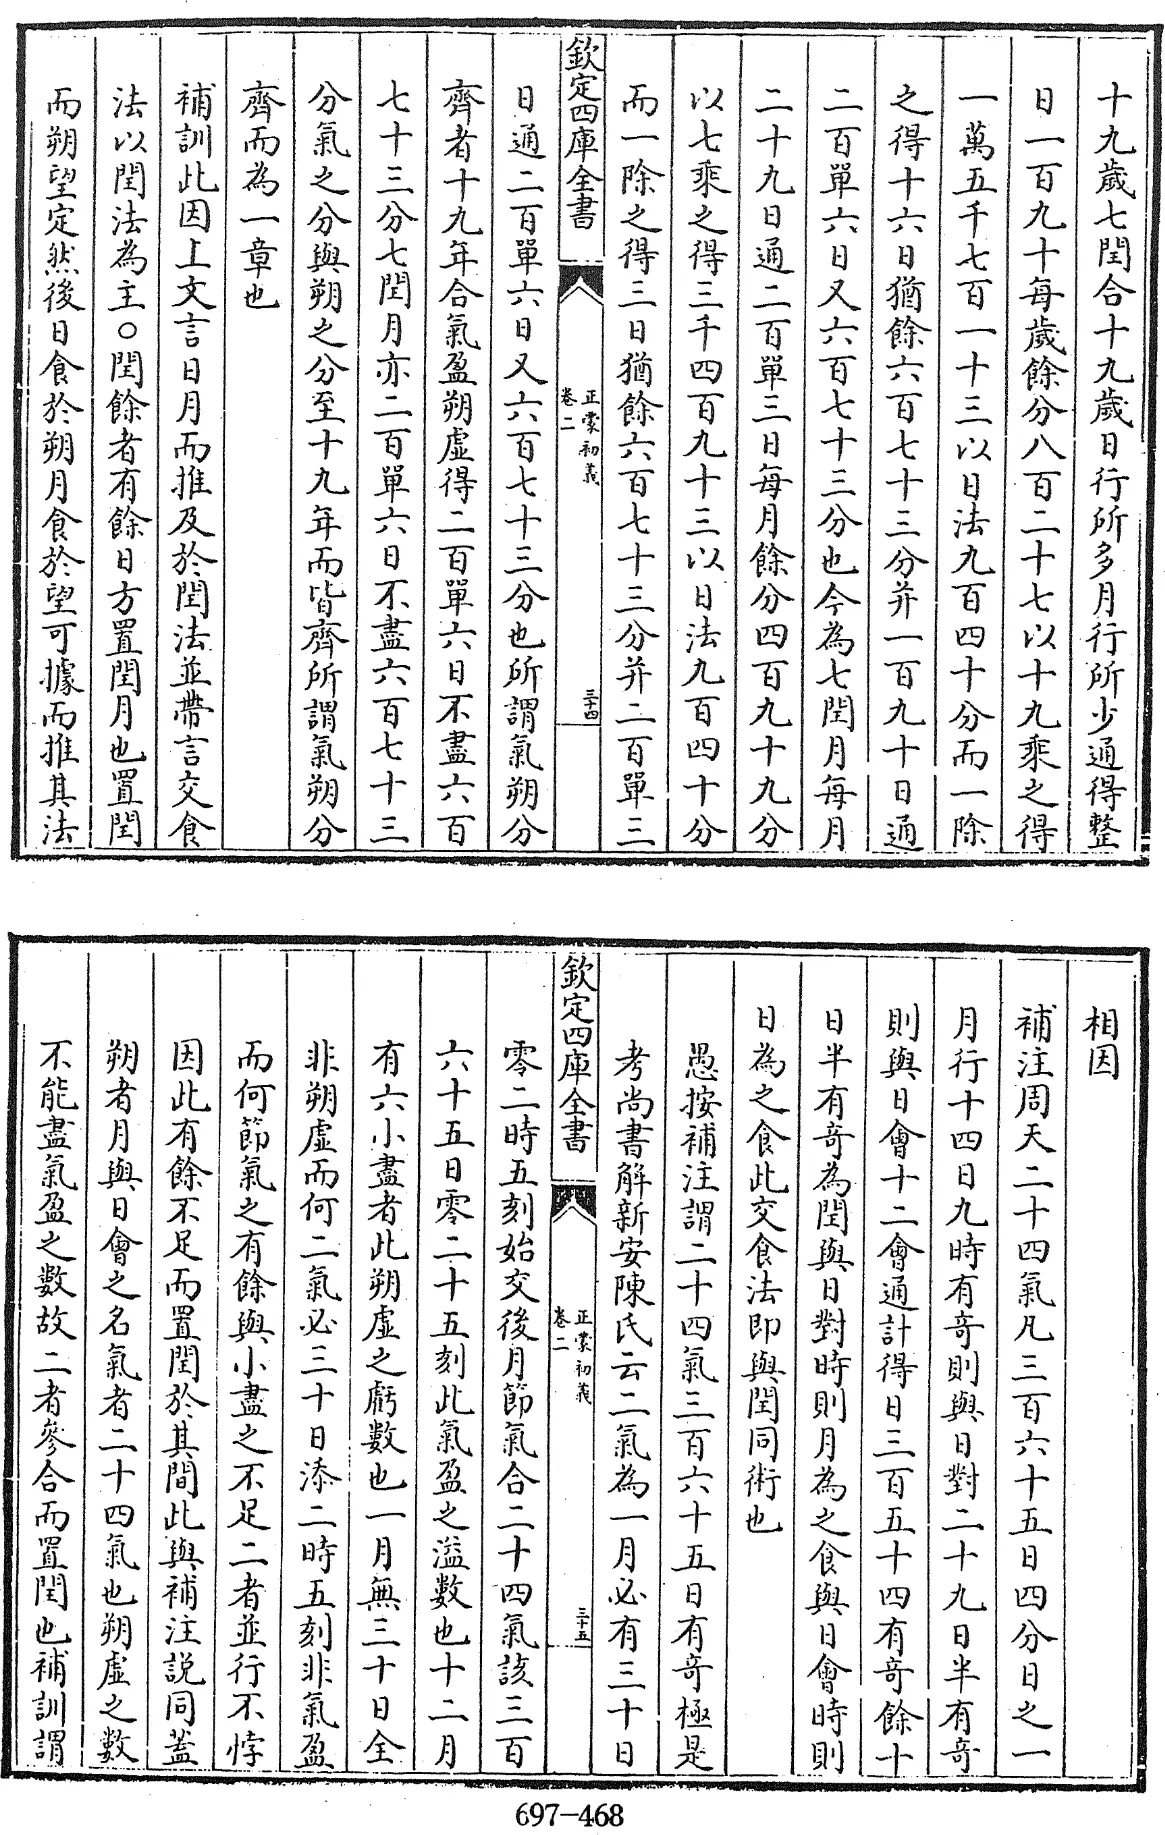 十九歲七閏合十九歲日行所多月行所少通得整
日一百九十每歲餘分八百二十七以十九乘之得
一萬五千七百一十三以日法九百四十分而一除
之得十六日猶餘六百七十三分并一百九十日通
二百單六日又六百七十三分也今為七閏月每月
二十九日通二百單三日每月餘分四百九十九分
以七乘之得三千四百九十三以日法九百四十分
而一除之得三日猶餘六百七十三分并二百單三
欽定四庫全書
正蒙初義
卷二
三十四
日通二百單六日又六百七十三分也所謂氣朔分
齊者十九年合氣盈朔虛得二百單六日不盡六百
七十三分七閏月亦二百單六日不盡六百七十三
分氣之分與朔之分至十九年而皆齊所謂氣朔分
齊而為一章也
補訓此因上文言日月而推及於閏法並帶言交食
法以閏法為主○閏餘者有餘日方置閏月也置閏
而朔望定然後日食於朔月食於望可據而推其法
相因
補注周天二十四氣凡三百六十五日四分日之一
月行十四日九時有奇則與日對二十九日半有奇
則與日會十二會通計得日三百五十四有奇餘十
日半有奇為閏與日對時則月為之食與日會時則
日為之食此交食法即與閏同術也
愚按補注謂二十四氣三百六十五日有奇極是
考尚書解新安陳氏云二氣為一月必有三十日
欽定四庫全書
正蒙初義
卷二
三十五
零二時五刻始交後月節氣合二十四氣該三百
六十五日零二十五刻此氣盈之溢數也十二月
有六小盡者此朔虛之虧數也一月無三十日全
非朔虛而何二氣必三十日添二時五刻非氣盈
而何節氣之有餘與小盡之不足二者並行不悖
因此有餘不足而置閏於其間此與補注説同蓋
朔者月與日會之名氣者二十四氣也朔虛之數
不能盡氣盈之數故二者參合而置閏也補訓謂
697-468